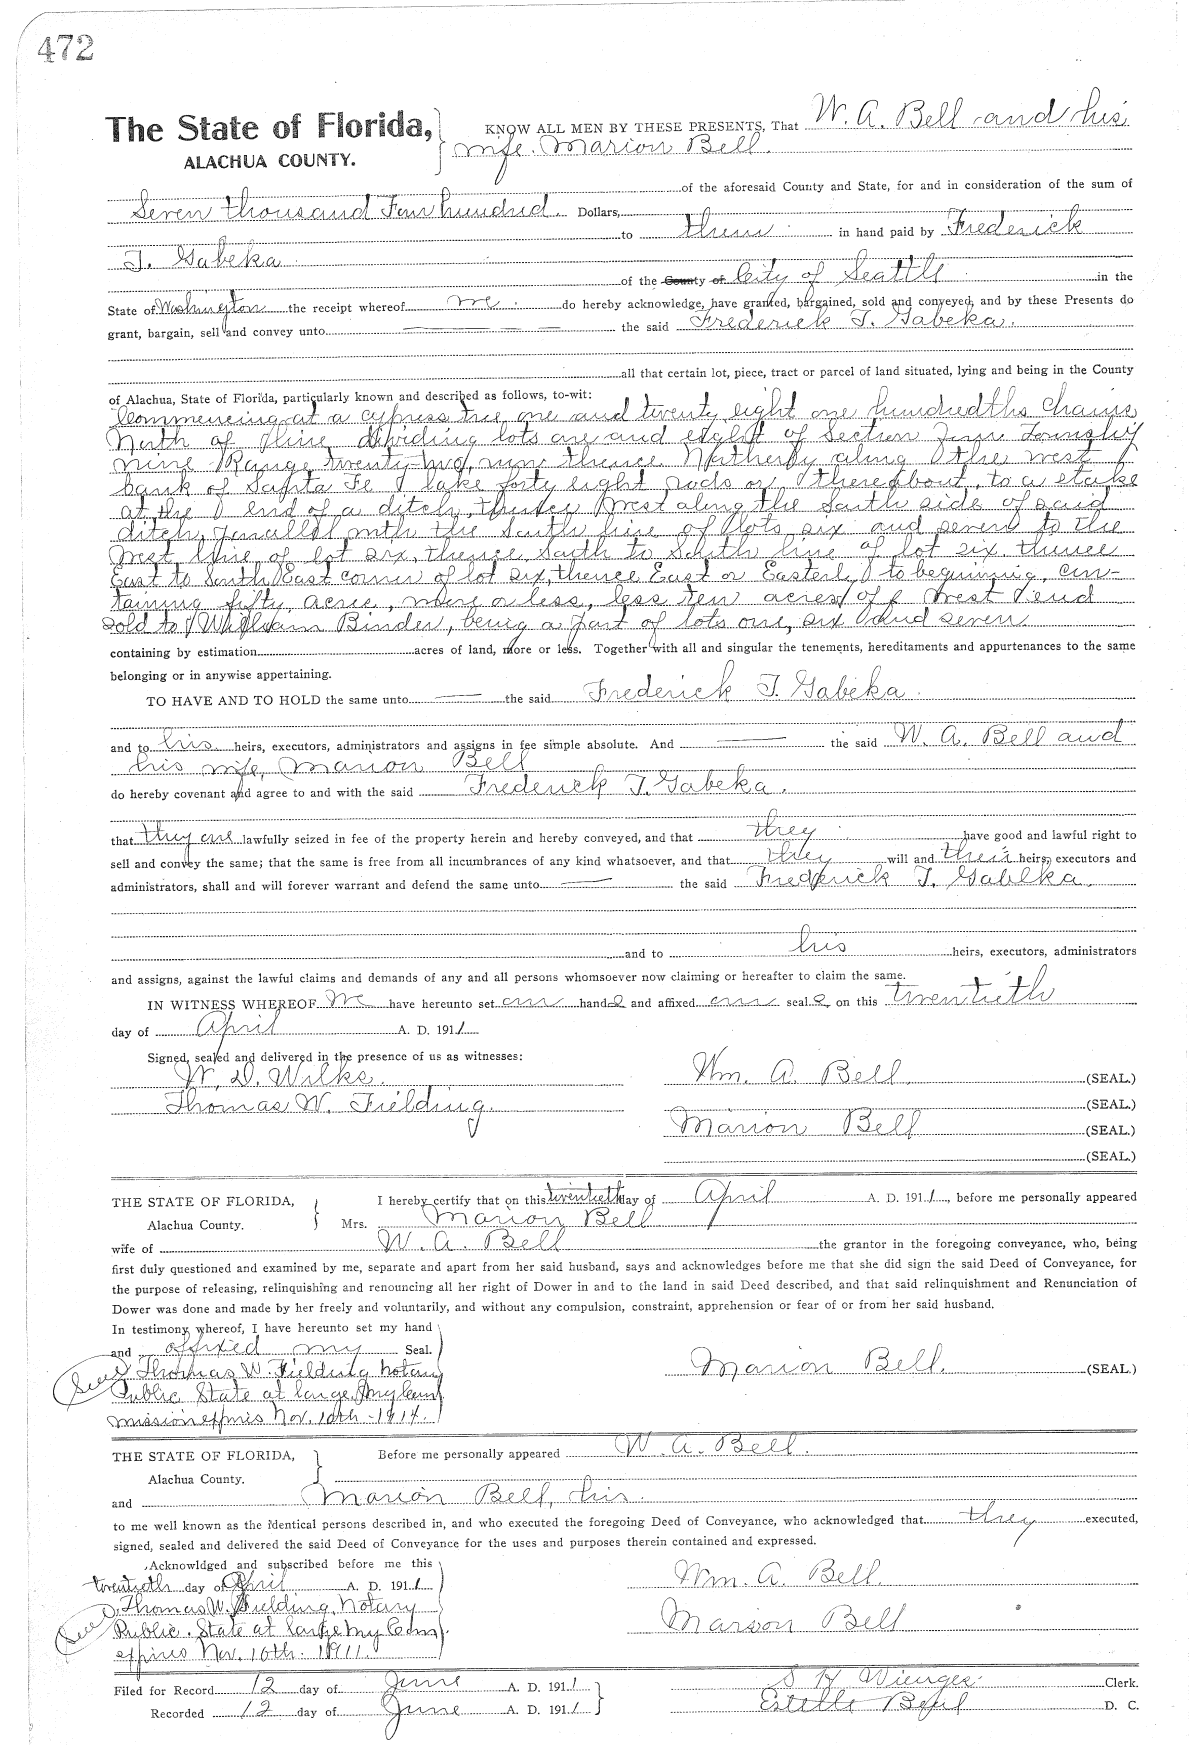 472
The State of Florida,
ALACHUA COUNTY.
KNOW ALL MEN BY THESE PRESENTS, That W. A. Bell and his
wife. Marion Bell.
of the aforesaid County and State, for and in consideration of the sum of
Seven thousand Four hundred Dollars,
to them in hand paid by Frederick
T. Gabeka
of the County of City of Seattle in the
State of Washington the receipt whereof we do hereby acknowledge, have granted, bargained, sold and conveyed, and by these Presents do
grant, bargain, sell and convey unto the said Frederick T. Gabeka.
all that certain lot, piece, tract or parcel of land situated, lying and being in the County
of Alachua, State of Florida, particularly known and described as follows, to-wit:
Commencing at a cypress tree one and twenty eight one hundredths chains
North of line dividing lots one and eight of Section Township
nine Range twenty-two, run thence Northerly along the west
bank of Santa Fe lake forty eight rods or thereabout, to a stake
at the end of a ditch, thence West along the South side of said
ditch, parallel with the South line of lots six and seven to the
West line of lot six, thence South to South line of lot six thence
East to South East corner of lot six, thence East or Easterly to beginning, con-
taining fifty acre, more or less, less ten acres off West end
sold to William Binder, being a part of lots one, six and seven
containing by estimation acres of land, more or less. Together with all and singular the tenements, hereditaments and appurtenances to the same
belonging or in anywise appertaining.
TO HAVE AND TO HOLD the same unto the said Frederick T. Gabeka.
and to his heirs, executors, administrators and assigns in fee simple absolute. And the said W. A. Bell and
his wife, Marion Bell
do hereby covenant and agree to and with the said Frederick T. Gabeka.
that they are lawfully seized in fee of the property herein and hereby conveyed, and that they have good and lawful right to
sell and convey the same; that the same is free from all incumbrances of any kind whatsoever, and that they will and their heirs, executors and
administrators, shall and will forever warrant and defend the same unto the said Frederick T. Gabeka.
and to his heirs, executors, administrators
and assigns, against the lawful claims and demands of any and all persons whomsoever now claiming or hereafter to claim the same.
IN WITNESS WHEREOF We have hereunto set our hands and affixed our seals on this twentieth
day of April A. D. 1911
Signed, sealed and delivered in the presence of us as witnesses:
W. D. Wilks. Wm. A. Bell (SEAL.)
Thomas W. Fielding. (SEAL.)
Marion Bell (SEAL.)
(SEAL.)
THE STATE OF FLORIDA, I hereby certify that on this twentieth day of April A. D. 1911, before me personally appeared
Alachua County. Mrs. Marion Bell
wife of W. A. Bell the grantor in the foregoing conveyance, who, being
first duly questioned and examined by me, separate and apart from her said husband, says and acknowledges before me that she did sign the said Deed of Conveyance, for
the purpose of releasing, relinquishing and renouncing all her right of Dower in and to the land in said Deed described, and that said relinquishment and Renunciation of
Dower was done and made by her freely and voluntarily, and without any compulsion, constraint, apprehension or fear of or from her said husband.
In testimony whereof, I have hereunto set my hand
and affixed my Seal.
Seal Thomas W. Fielding Notary Marion Bell. (SEAL.)
Public State at large My Com
mission expires Nov. 10th - 1914.
THE STATE OF FLORIDA, Before me personally appeared W. A. Bell.
Alachua County.
and Marion Bell, his
to me well known as the identical persons described in, and who executed the foregoing Deed of Conveyance, who acknowledged that they executed,
signed, sealed and delivered the said Deed of Conveyance for the uses and purposes therein contained and expressed.
Acknowldged and subscribed before me this
twentieth day of April A. D. 1911 Wm. A. Bell.
Thomas W. Fielding, Notary
Seal Public. State at large My Com Marion Bell
expires Nov. 10th. 1911.
Filed for Record 12 day of June A. D. 1911 S H Wienges. Clerk.
Recorded 12 day of June A. D. 1911 Estelle D. C.